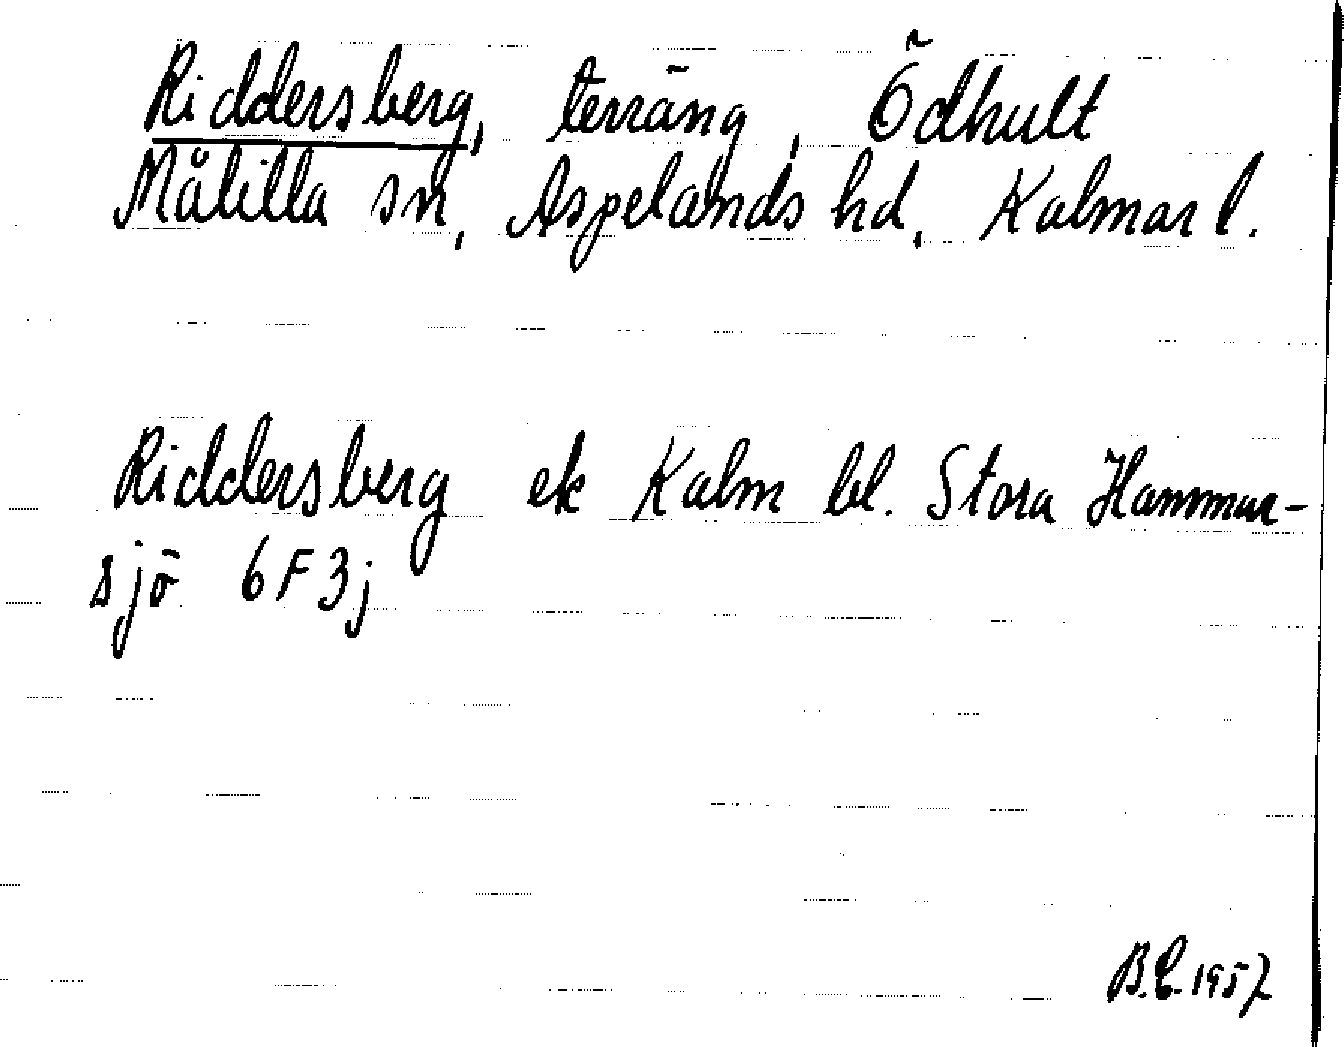 Riddersberg, terräng, Ödhult
Målilla sn, Aspelands hd, Kalmar l.
Riddersberg ek Kalm bl. Stora Hammar-
sjö 6F3j
B.E. 1957